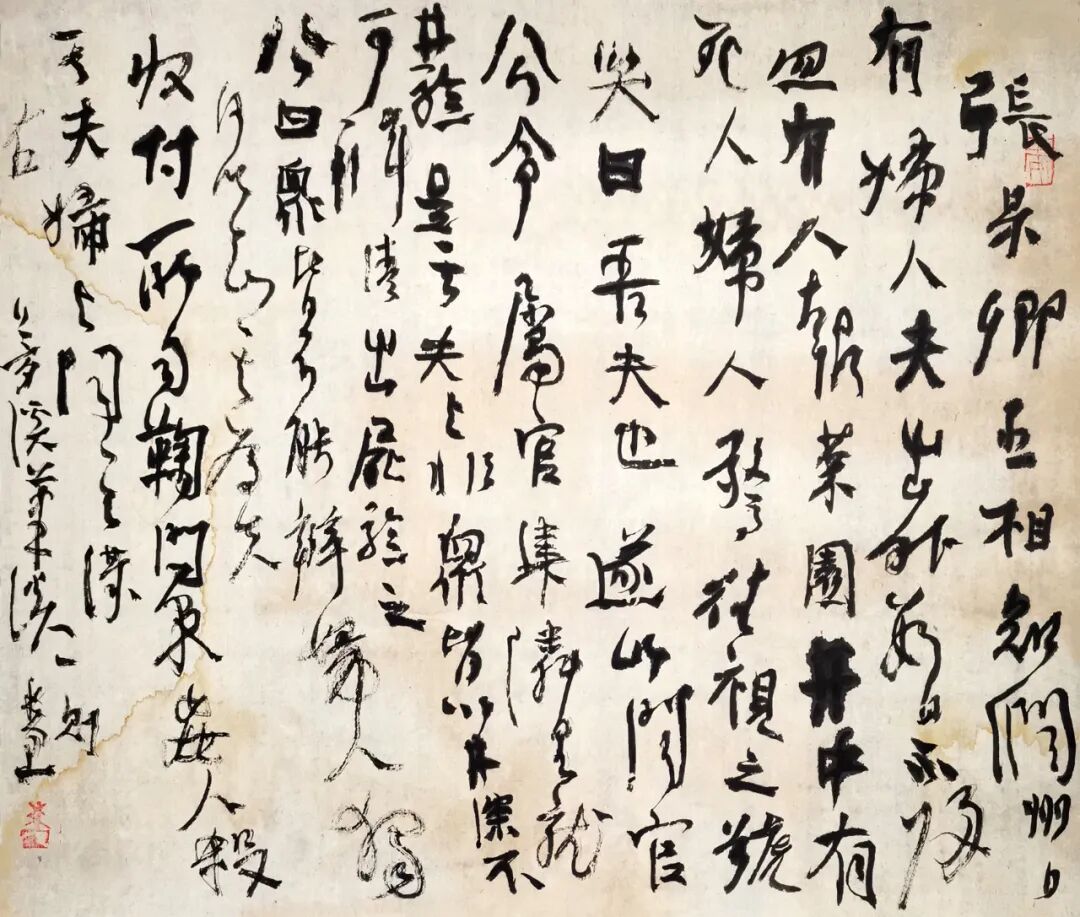 張杲卿丞相知潤州日
有婦人夫出外數日不歸
忽有人報菜園井中有
死人婦人驚往視之號
哭曰吾夫也遂以聞官
公令屬官集鄰里就
井驗是其夫與非衆皆以井深不
可辨請出屍驗之
公曰衆皆不能辨婦人獨
何以知其為夫
收付所司鞠問果姦人殺
其夫婦與聞其謀
右夢溪筆談一則